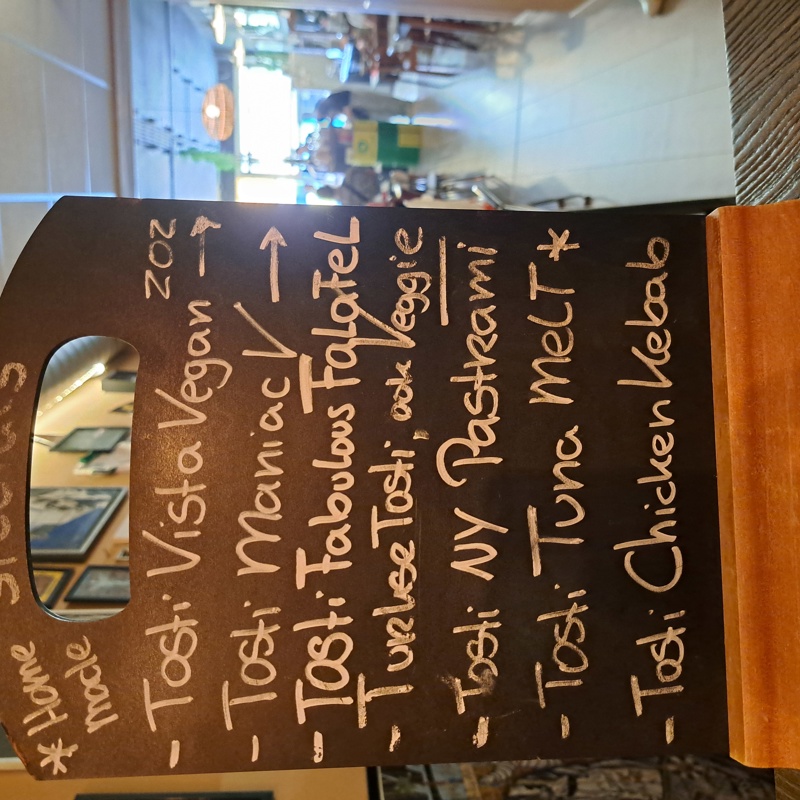 * Home
made
ZOZ
- Tosti Vista Vegan →
- Tosti Maniac V →
- Tosti Fabulous FalaFeL
- Turkse Tosti, ook Veggie
- Tosti NY Pastrami
- Tosti Tuna MeLT *
- Tosti Chicken Kebab